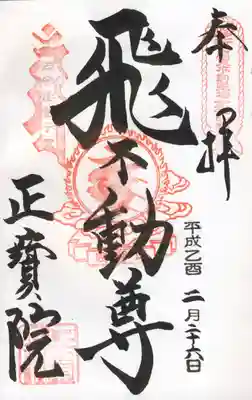 奉拝
平成乙酉 二月二十六日
飛不動尊
正寳院